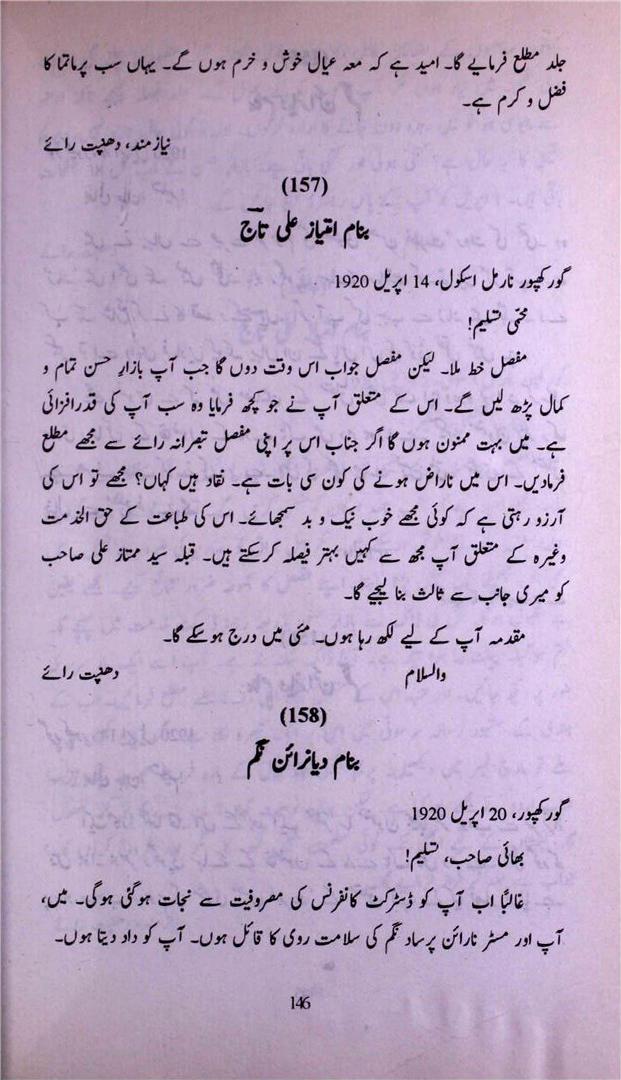 جلد مطلع فرمایے گا۔ امید ہے کہ معہ عیال خوش و خرم ہوں گے۔ یہاں سب پرماتما کا
فضل و کرم ہے۔
نیازمند، دھنپت رائے
(157)
بنام امتیاز علی تاج
گورکھپور نارمل اسکول، 14 اپریل 1920
محبّی تسلیم!
مفصل خط ملا۔ لیکن مفصل جواب اس وقت دوں گا جب آپ بازارِ حسن تمام و
کمال پڑھ لیں گے۔ اس کے متعلق آپ نے جو کچھ فرمایا وہ سب آپ کی قدرافزائی
ہے۔ میں بہت ممنون ہوں گا اگر جناب اس پر اپنی مفصل تبصرانہ رائے سے مجھے مطلع
فرمادیں۔ اس میں ناراض ہونے کی کون سی بات ہے۔ نقاد ہیں کہاں؟ مجھے تو اس کی
آرزو رہتی ہے کہ کوئی مجھے خوب نیک و بد سمجھائے۔ اس کی طباعت کے حق الخدمت
وغیرہ کے متعلق آپ مجھ سے کہیں بہتر فیصلہ کرسکتے ہیں۔ قبلہ سید ممتاز علی صاحب
کو میری جانب سے ثالث بنا لیجیے گا۔
مقدمہ آپ کے لیے لکھ رہا ہوں۔ مئی میں درج ہوسکے گا۔
والسلام دھنپت رائے
(158)
بنام دیانرائن نگم
گورکھپور، 20 اپریل 1920
بھائی صاحب، تسلیم!
غالبًا اب آپ کو ڈسٹرکٹ کانفرنس کی مصروفیت سے نجات ہوگئی ہوگی۔ میں،
آپ اور مسٹر نارائن پرساد نگم کی سلامت روی کا قائل ہوں۔ آپ کو داد دیتا ہوں۔
146